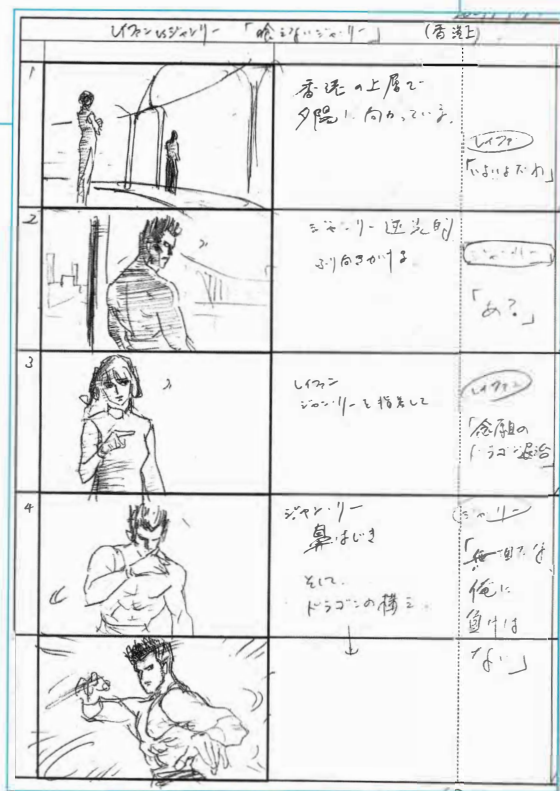 レイファンvsジャンリー 「喰えないジャンリー」 (香港上)
1
香港の上層で
夕陽に向かっている。
レイファン
「いよいよだわ」
2
ジャンリー 逆光的
ふり向きかける
「あ?」
3
レイファン
ジャンリーを指差して
レイファン
「念願の
ドラゴン退治」
4
ジャン・リー
鼻はじき
そして、
ドラゴンの構え。
ジャンリー
「無理だな
俺に
負けは
ない」